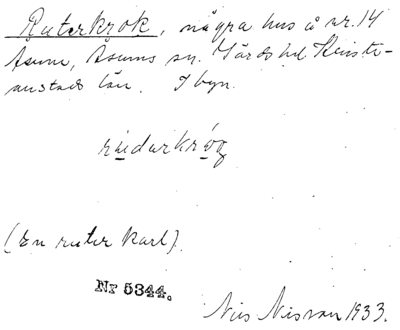 Ruterkrok, några hus å nr. 14
Åsum, Åsums sn. Gärds hd. Kristi-
anstads län. I byn.
rúdərkróg
(En ruter karl).
Nr 5344.
Nils Nilsson 1933.